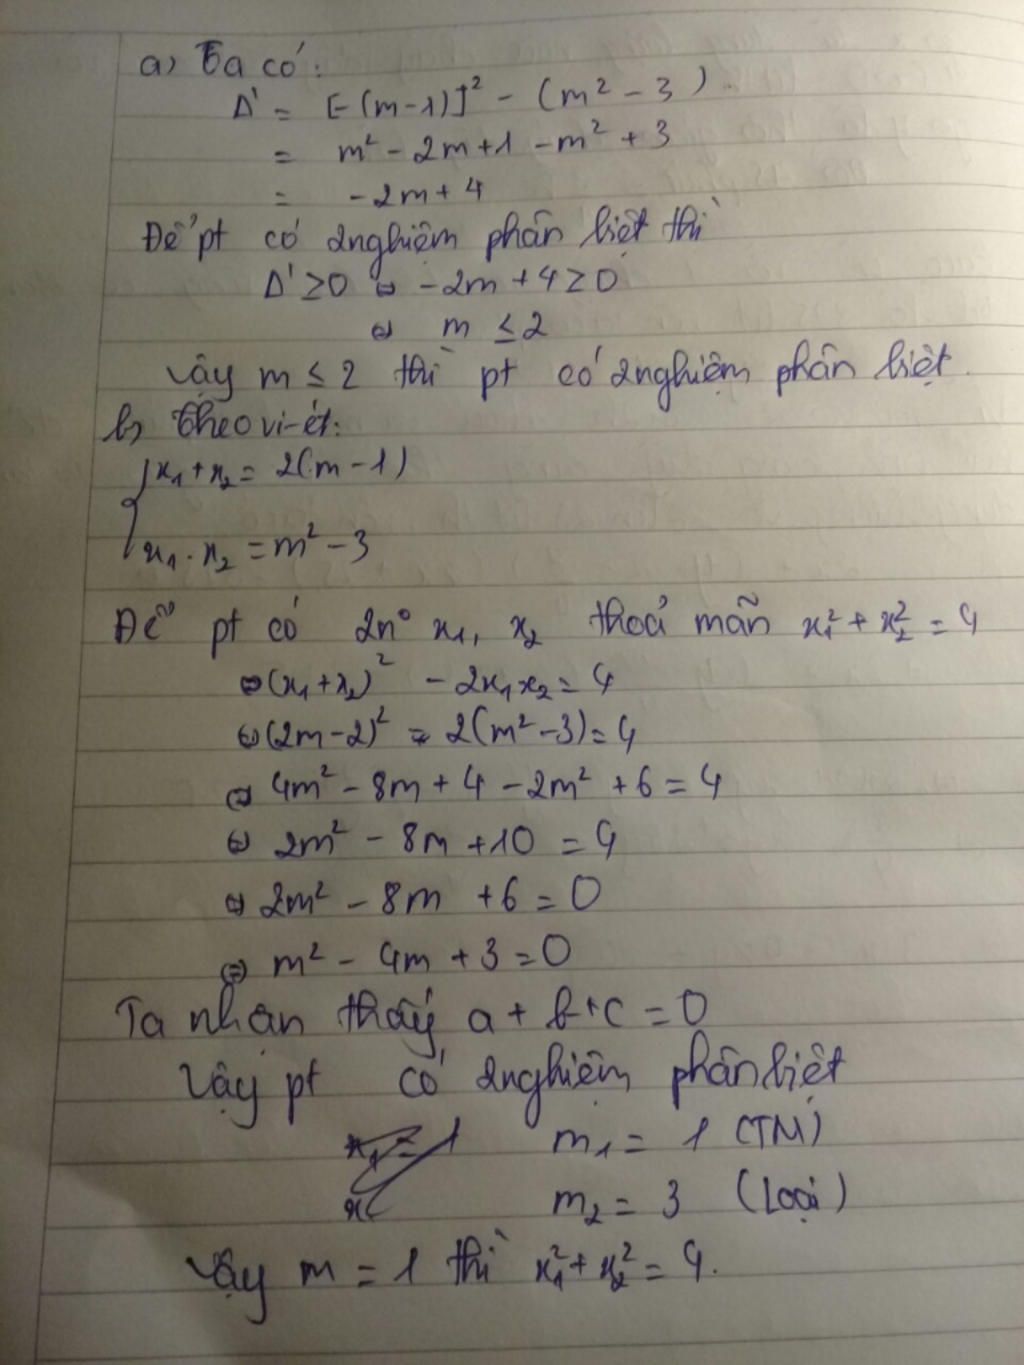 a) Ta có:
Δ' = [-(m-1)]² - (m² - 3)
= m² - 2m + 1 - m² + 3
= -2m + 4
Để pt có 2nghiệm phân biệt thì
Δ' ≥ 0 ⇔ -2m + 4 ≥ 0
⇔ m ≤ 2
Vậy m ≤ 2 thì pt có 2nghiệm phân biệt.
b) theo vi-ét:
{ x₁ + x₂ = 2(m - 1)
x₁ . x₂ = m² - 3
Để pt có 2n° x₁, x₂ thoả mãn x₁² + x₂² = 4
⇔ (x₁ + x₂)² - 2x₁x₂ = 4
⇔ (2m - 2)² - 2(m² - 3) = 4
⇔ 4m² - 8m + 4 - 2m² + 6 = 4
⇔ 2m² - 8m + 10 = 4
⇔ 2m² - 8m + 6 = 0
⇔ m² - 4m + 3 = 0
Ta nhận thấy a + b + c = 0
Vậy pt có 2nghiệm phân biệt
m₁ = 1 (TM)
m₂ = 3 (Loại)
Vậy m = 1 thì x₁² + x₂² = 4.